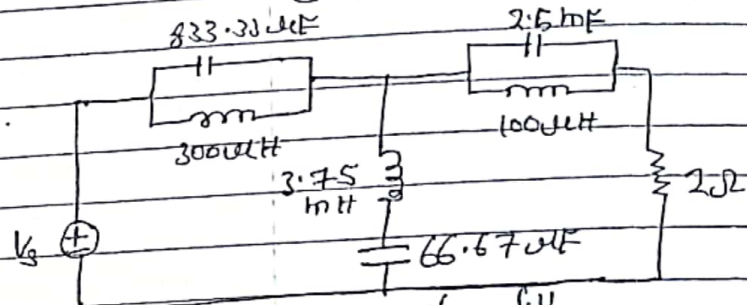 833.33µF
2.5mF
300µH
100µH
3.75
mH
2Ω
Vg
+
66.67µF